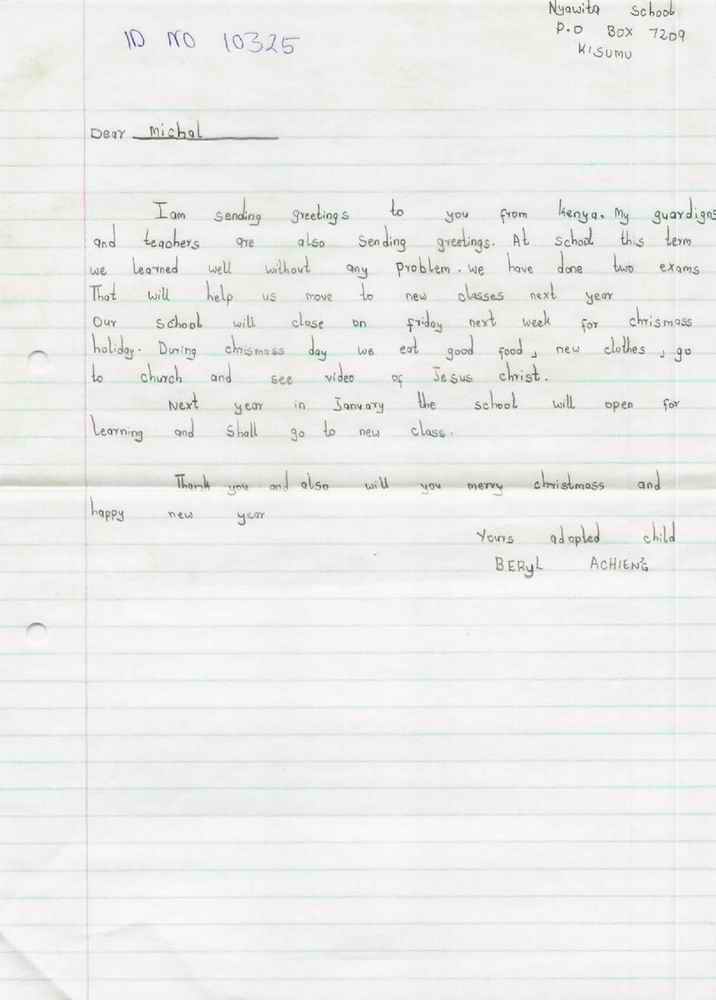 Nyawita School
ID NO 10325
P.O BOX 7209
KISUMU
Dear Michal
I am sending greetings to you from Kenya. My guardigns
and teachers are also sending greetings. At school this term
we learned well without any problem. we have done two exams
That will help us move to new classes next year
Our school will close on friday next week for chrismass
holiday. During chrismass day we eat good food, new clothes, go
to church and see video of Jesus christ.
Next year in January the school will open for
learning and shall go to new class.
Thank you and also will you merry christmass and
happy new year
Yours adopted child
BERyL ACHIENG